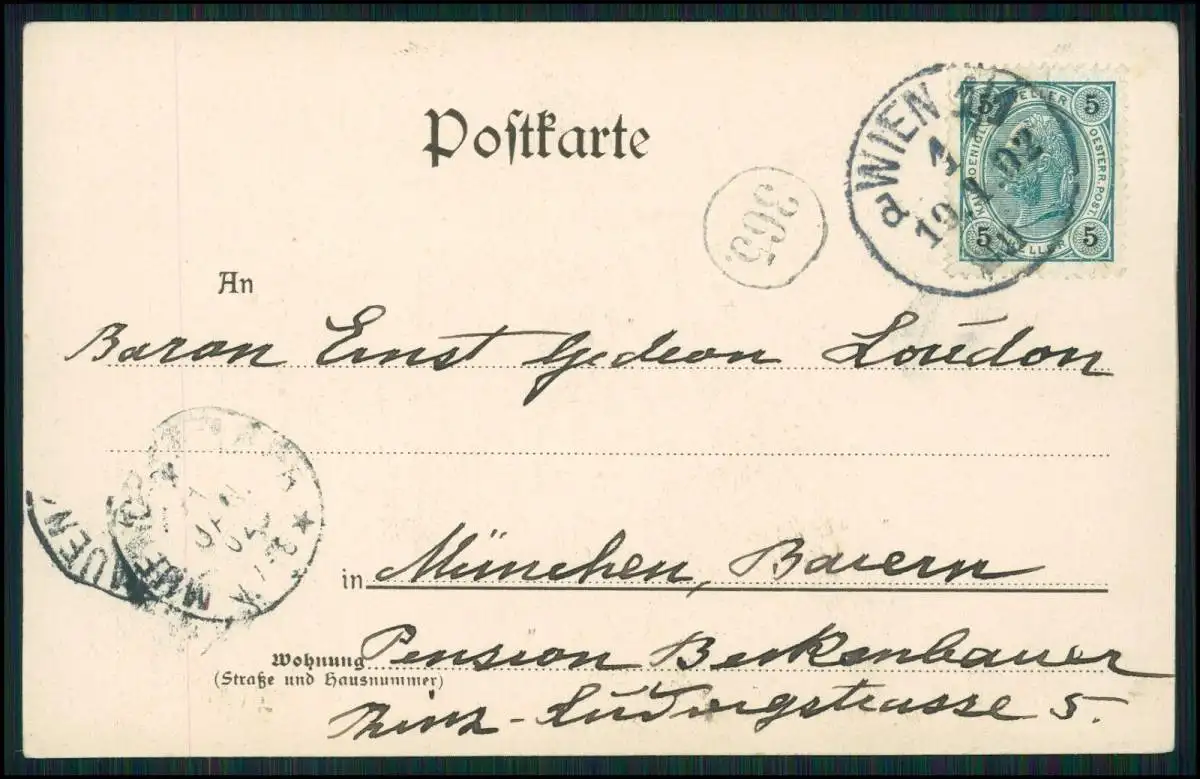 Postkarte
WIEN
d
1
19.1.02
5 HELLER 5
OESTERR. POST.
5 HELLER 5
363.
An
Baron Ernst Gedeon Loudon
in München, Baiern
Wohnung Pension Beckenbauer
(Straße und Hausnummer)
Prinz-Ludwigstrasse 5.